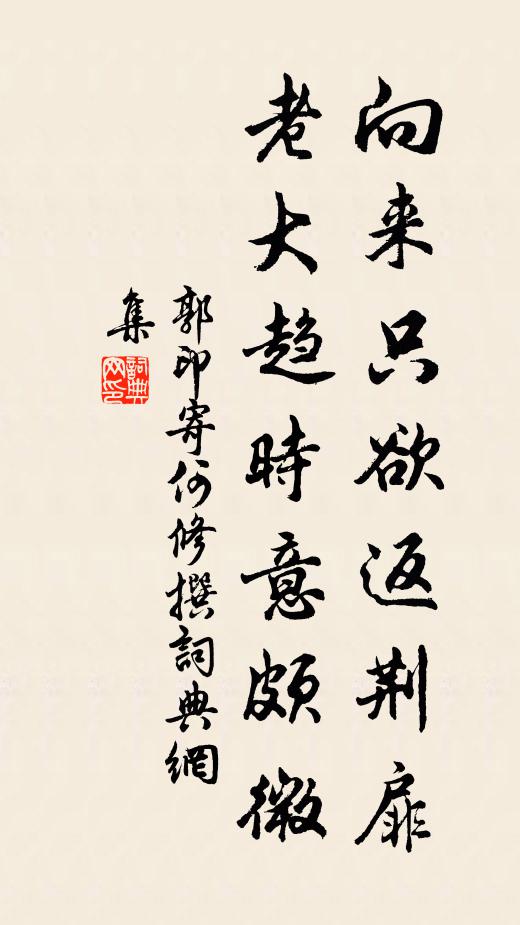 向来只欲返荆扉
老大趋時意頗微
郭印寄何修撰詞典網
集
詞典網印